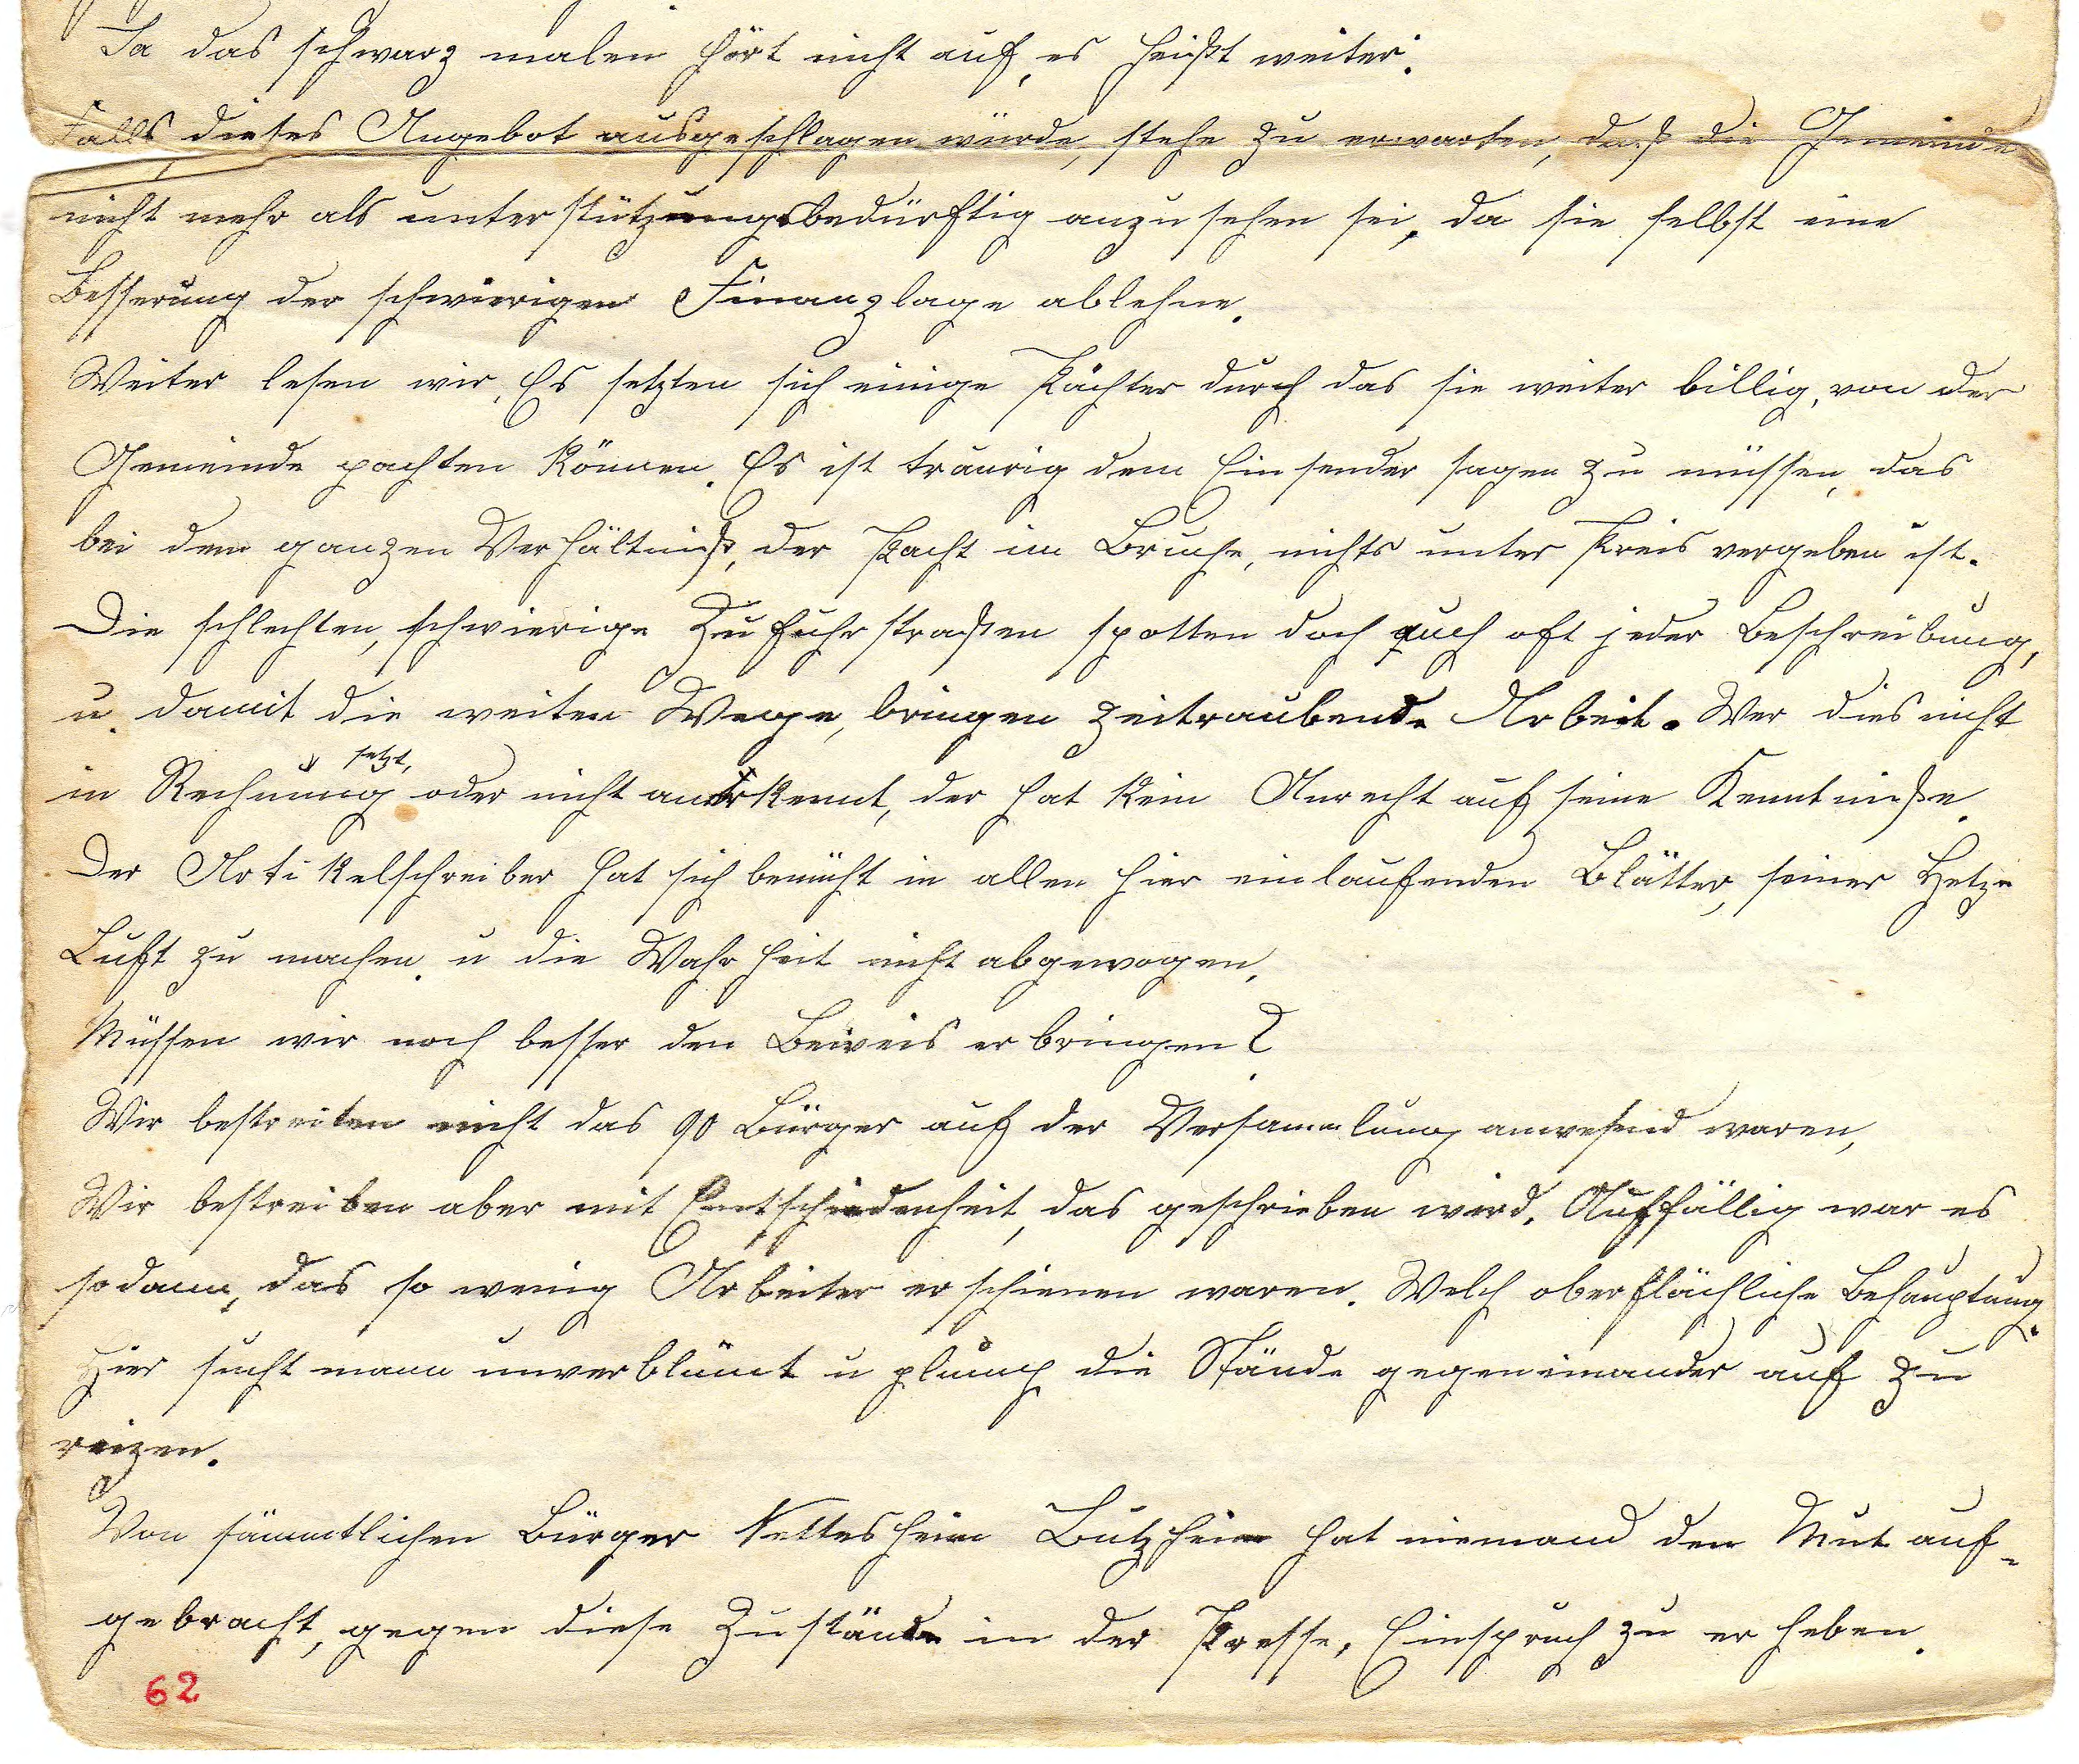 Ja das schwarz malen hört nicht auf, es heißt weiter:
Falls dieses Angebot ausgeschlagen würde, stehe zu erwarten, daß die Gemeinde
nicht mehr als unterstützungsbedürftig anzusehen sei, da sie selbst eine
Besserung der schwierigen Finanzlage ablehne.
Weiter lesen wir, Es setzten sich einige Pächter durch das sie weiter billig, von der
Gemeinde pachten können. Es ist traurig dem Einsender sagen zu müssen, das
bei dem ganzen Verhältniß, der Pacht im Bruche, nichts unter Preis vergeben ist.
Die schlechten, schwierige Zufuhrstraßen spotten doch auch oft jeder Beschreibung,
u. damit die weiten Wege, bringen zeitraubende Arbeit. Wer dies nicht
setzt,
in Rechnung oder nicht anerkennt, der hat kein Anrecht auf seine Kenntniße.
Der Artikelschreiber hat sich bemüht in allen hier einlaufenden Blätter, seiner Hetze
Luft zu machen. u die Wahrheit nicht abgewogen.
Müssen wir noch besser den Beweis erbringen?
Wir bestreiten nicht das 90 Bürger auf der Versammlung anwesend waren,
Wir bestreiben aber mit Entschiedenheit, das geschrieben wird. Auffällig war es
sodann, das so wenig Arbeiter erschienen waren. Welch oberflächliche Behauptung.
Hier sucht mann unverblümt u plump die Stände gegeneinander auf zu
reizen.
Von sämmtlichen Bürger Nettesheim Butzheim hat niemand den Mut auf-
gebracht, gegen diese Zustände in der Presse, Einspruch zu erheben.
62